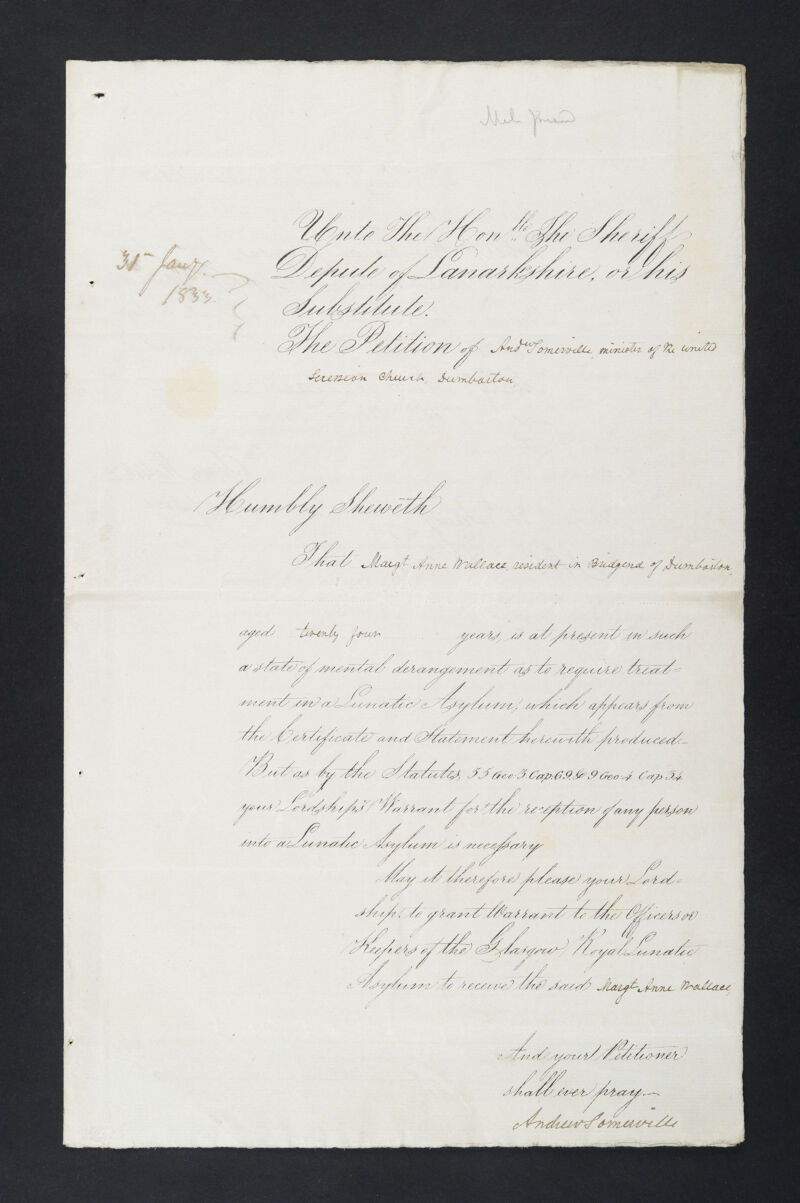 Unto The Honble. The Sheriff
Depute of Lanarkshire, or his
Substitute.
31st Jany.
1833.
The Petition of Andw Somerville, minister of the united
Secession Church Dumbarton,
Humbly Sheweth
That Margt Anne Wallace, resident in Bridgend of Dumbarton,
aged twenty four years, is at present in such
a state of mental derangement as to require treat-
ment in a Lunatic Asylum, which appears from
the Certificate and Statement herewith produced_
But as by the Statutes, 55 Geo 3 Cap. 69 & 9 Geo 4 Cap 34
your Lordship's Warrant for the reception of any person
into a Lunatic Asylum is necessary
May it therefore please your Lord-
ship, to grant Warrant to the Officers or
Keepers of the Glasgow Royal Lunatic
Asylum to receive the said Margt Anne Wallace,
And your Petitioner
shall ever pray.—
Andrew Somerville